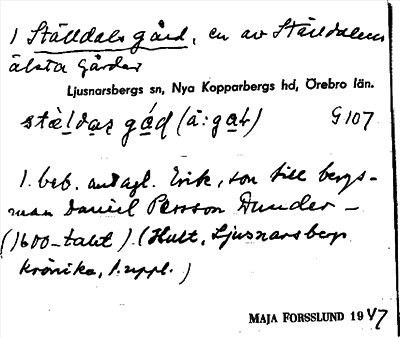 1 Ställdals gård, en av Ställdalens
älsta gårdar
Ljusnarsbergs sn, Nya Kopparbergs hd, Örebro län.
stäldas gåd (å: gat) G 107
1. beb. antagl. Erik, son till bergs-
man Daniel Persson Dunder –
(1600-talet). (Hult, Ljusnarsbergs
krönika, 1. uppl.)
MAJA FORSSLUND 19 V7